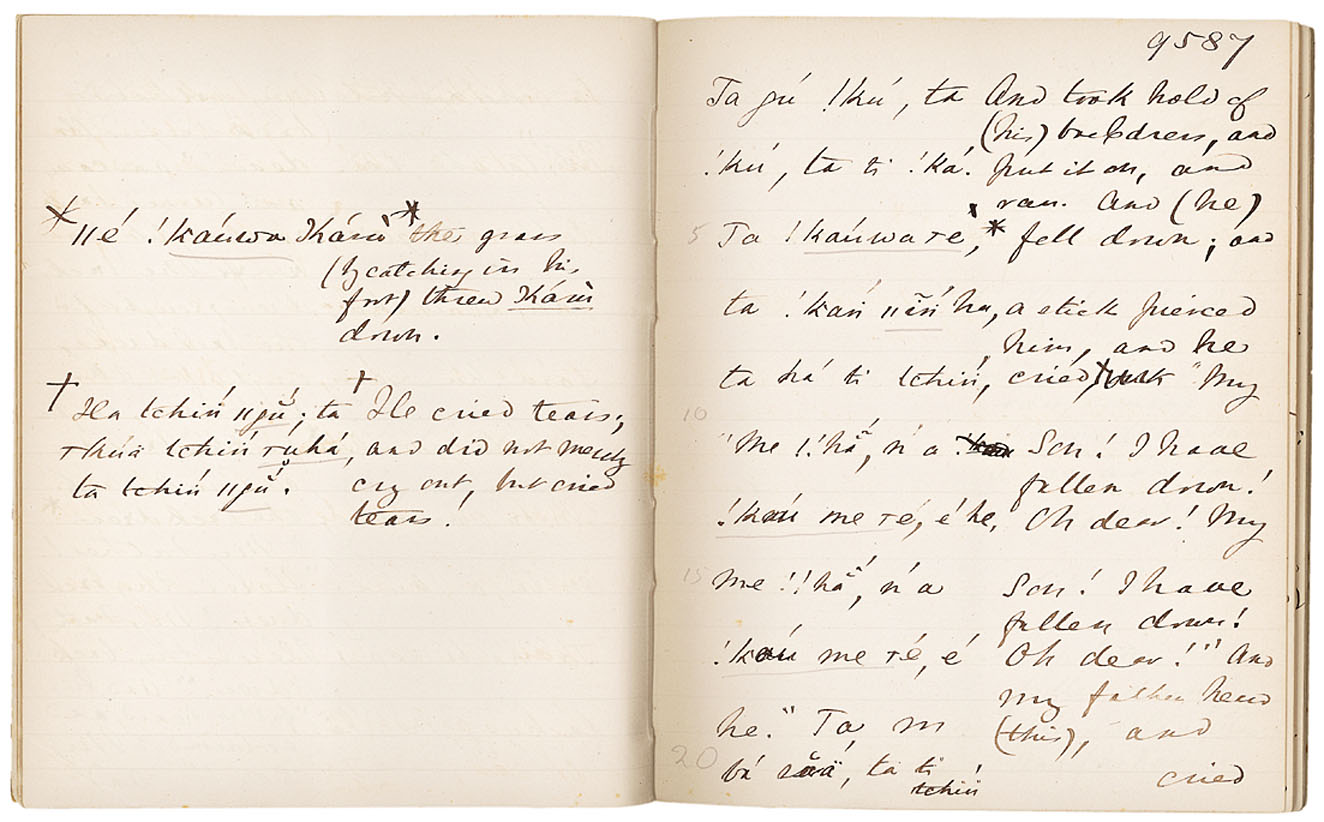 ǁé !kaúwa Karu * the grass
(by catching in his
foot) threw Karu
down.
† Ha tchiń ǁgú; ta † He cried tears;
tchiń ruhá, and did not merely
ta tchiń ǁgú. cry out, but cried
tears!
9587
Ta gú !kú, ta And took hold of
(his) backdress, and
!kú, ta ti !ká. put it on, and
ran. And (he)
5 Ta !kaúwa re, * fell down; and
ta !kań ha, a stick pierced
him, and he
ta há ti tchiń, cried, "My
10
"Me !!há, ń a Son! I have
fallen down!
!kaú me ré, é he, Oh dear! My
15 me !!há, ń a Son! I have
fallen down!
!kaú me ré, é Oh dear!" And
my father heard
he." Ta, m (this), and
20
bá ta ti cried
tchiń